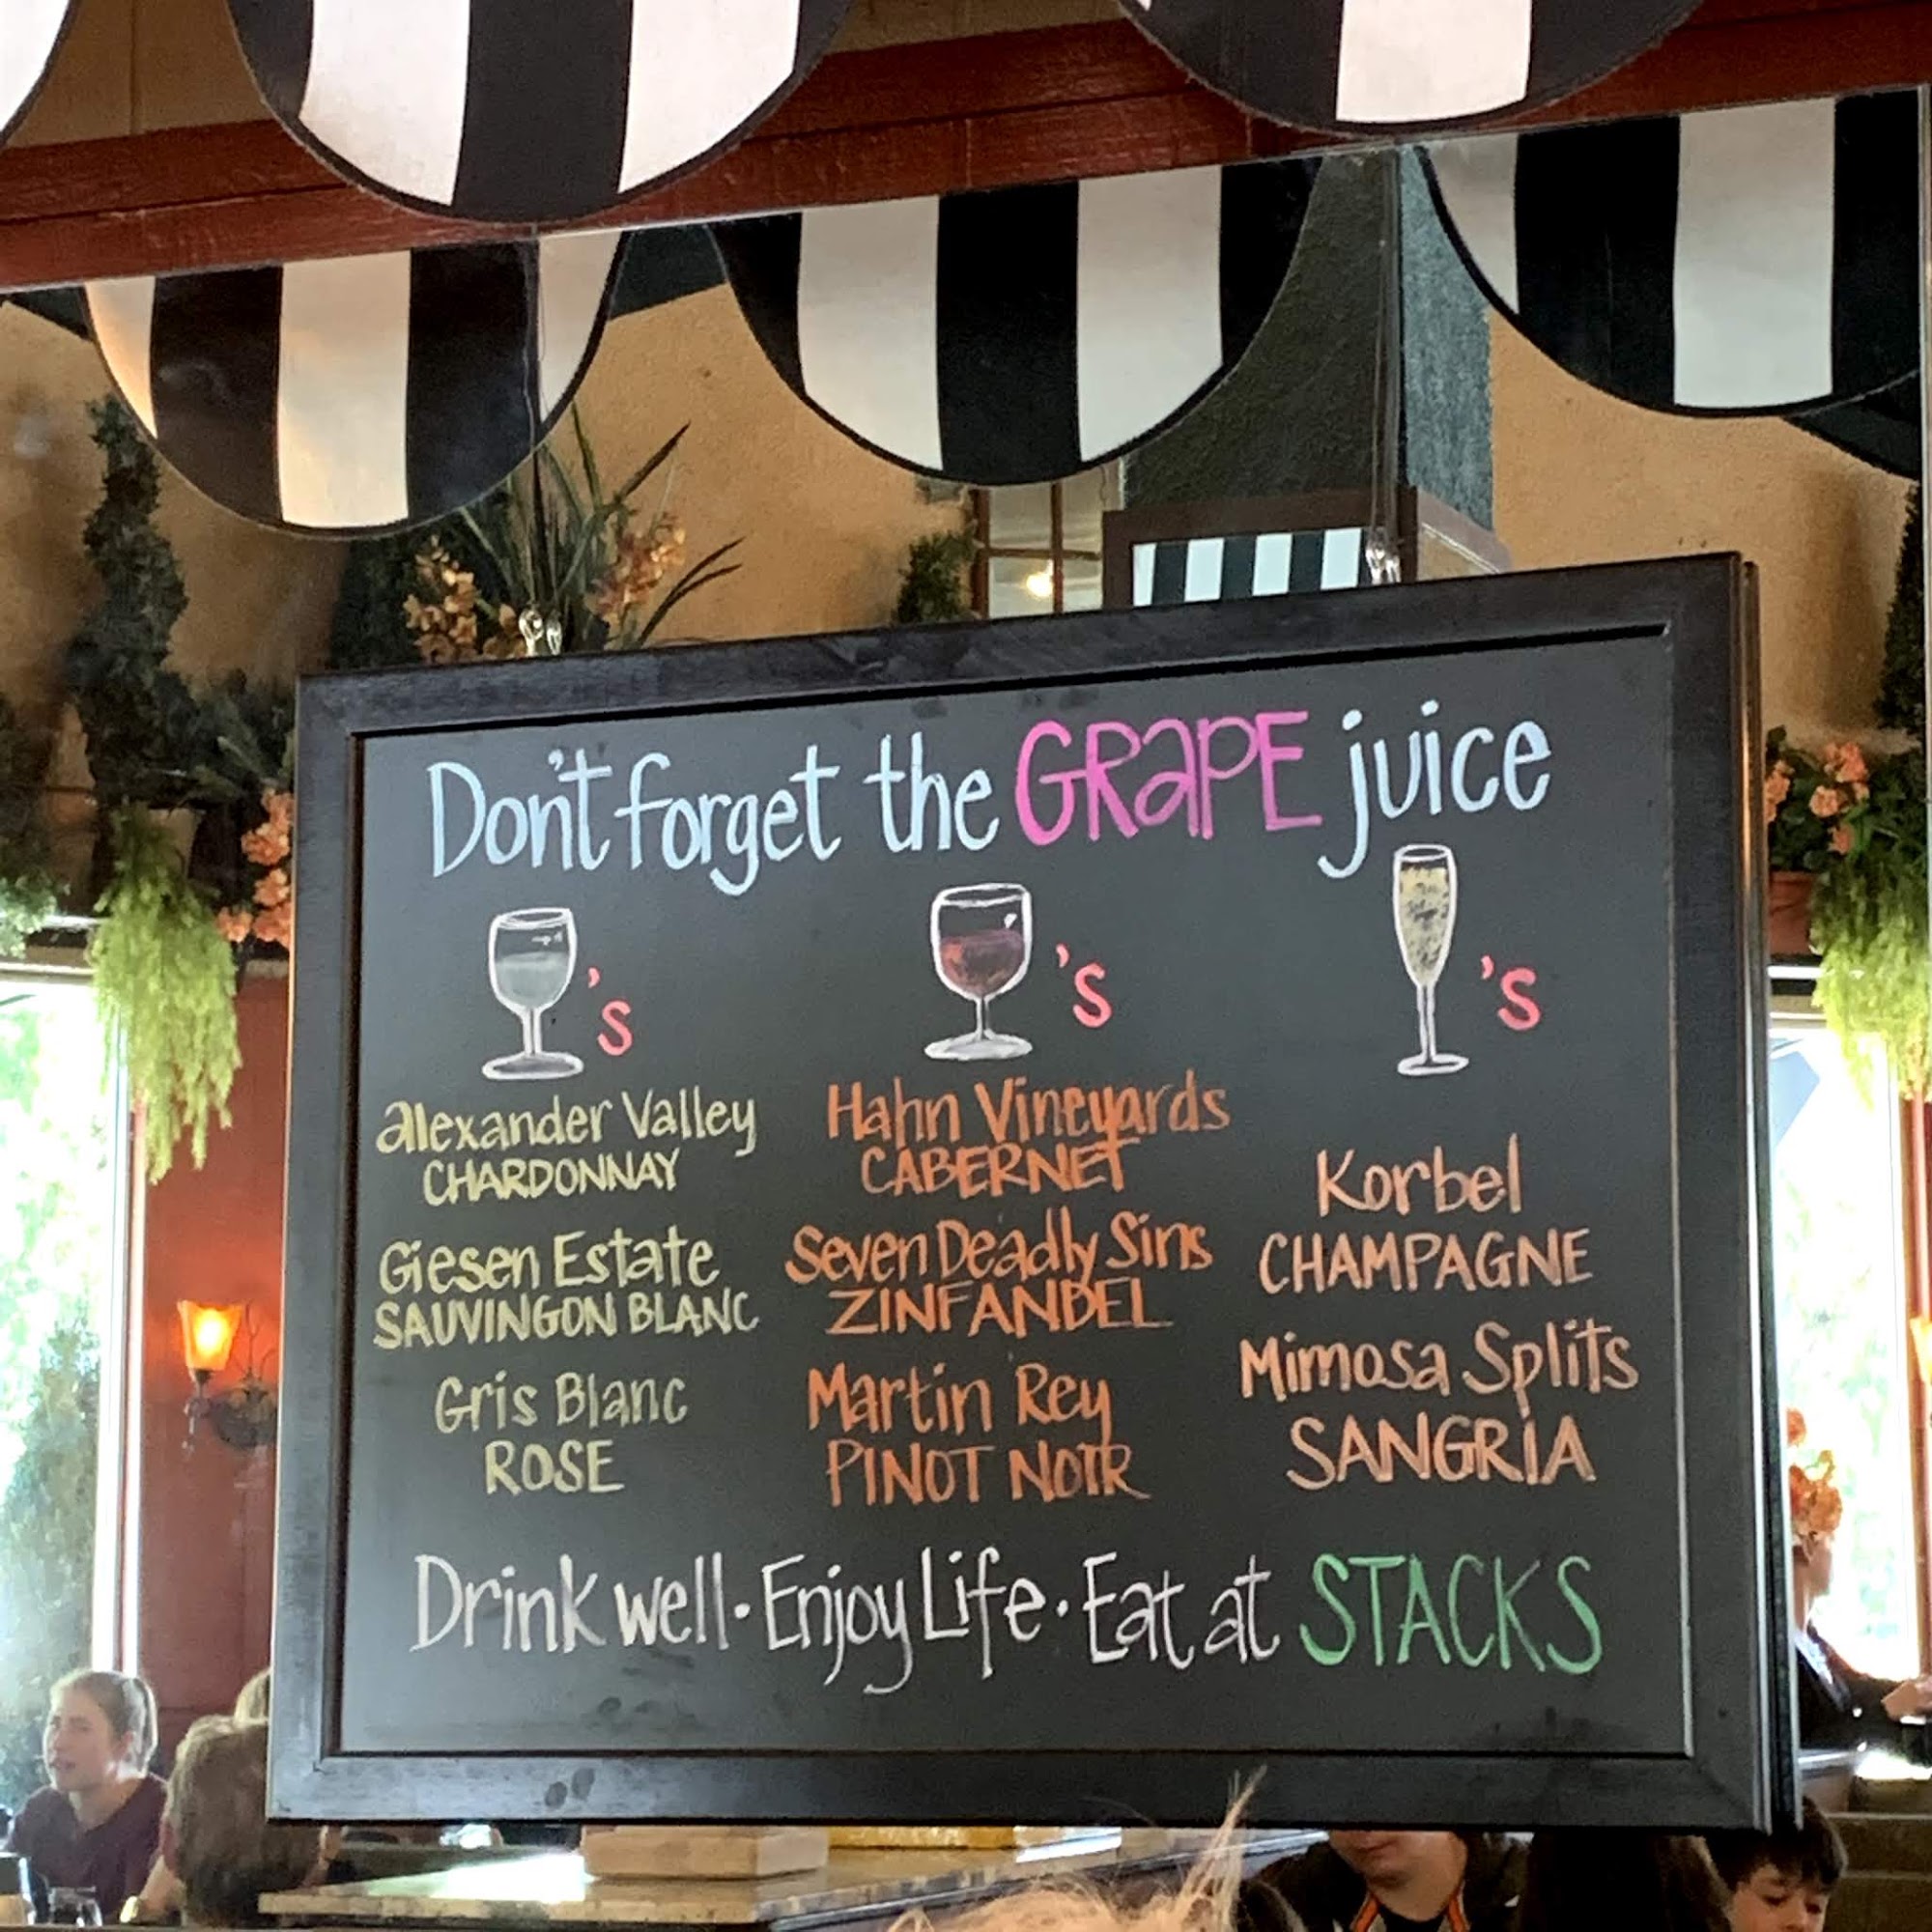 Don't forget the GRAPE juice
's
's
's
Alexander Valley
CHARDONNAY
Giesen Estate
SAUVINGON BLANC
Gris Blanc
ROSE
Hahn Vineyards
CABERNET
Seven Deadly Sins
ZINFANDEL
Martin Rey
PINOT NOIR
Korbel
CHAMPAGNE
Mimosa Splits
SANGRIA
Drink well · Enjoy Life · Eat at STACKS